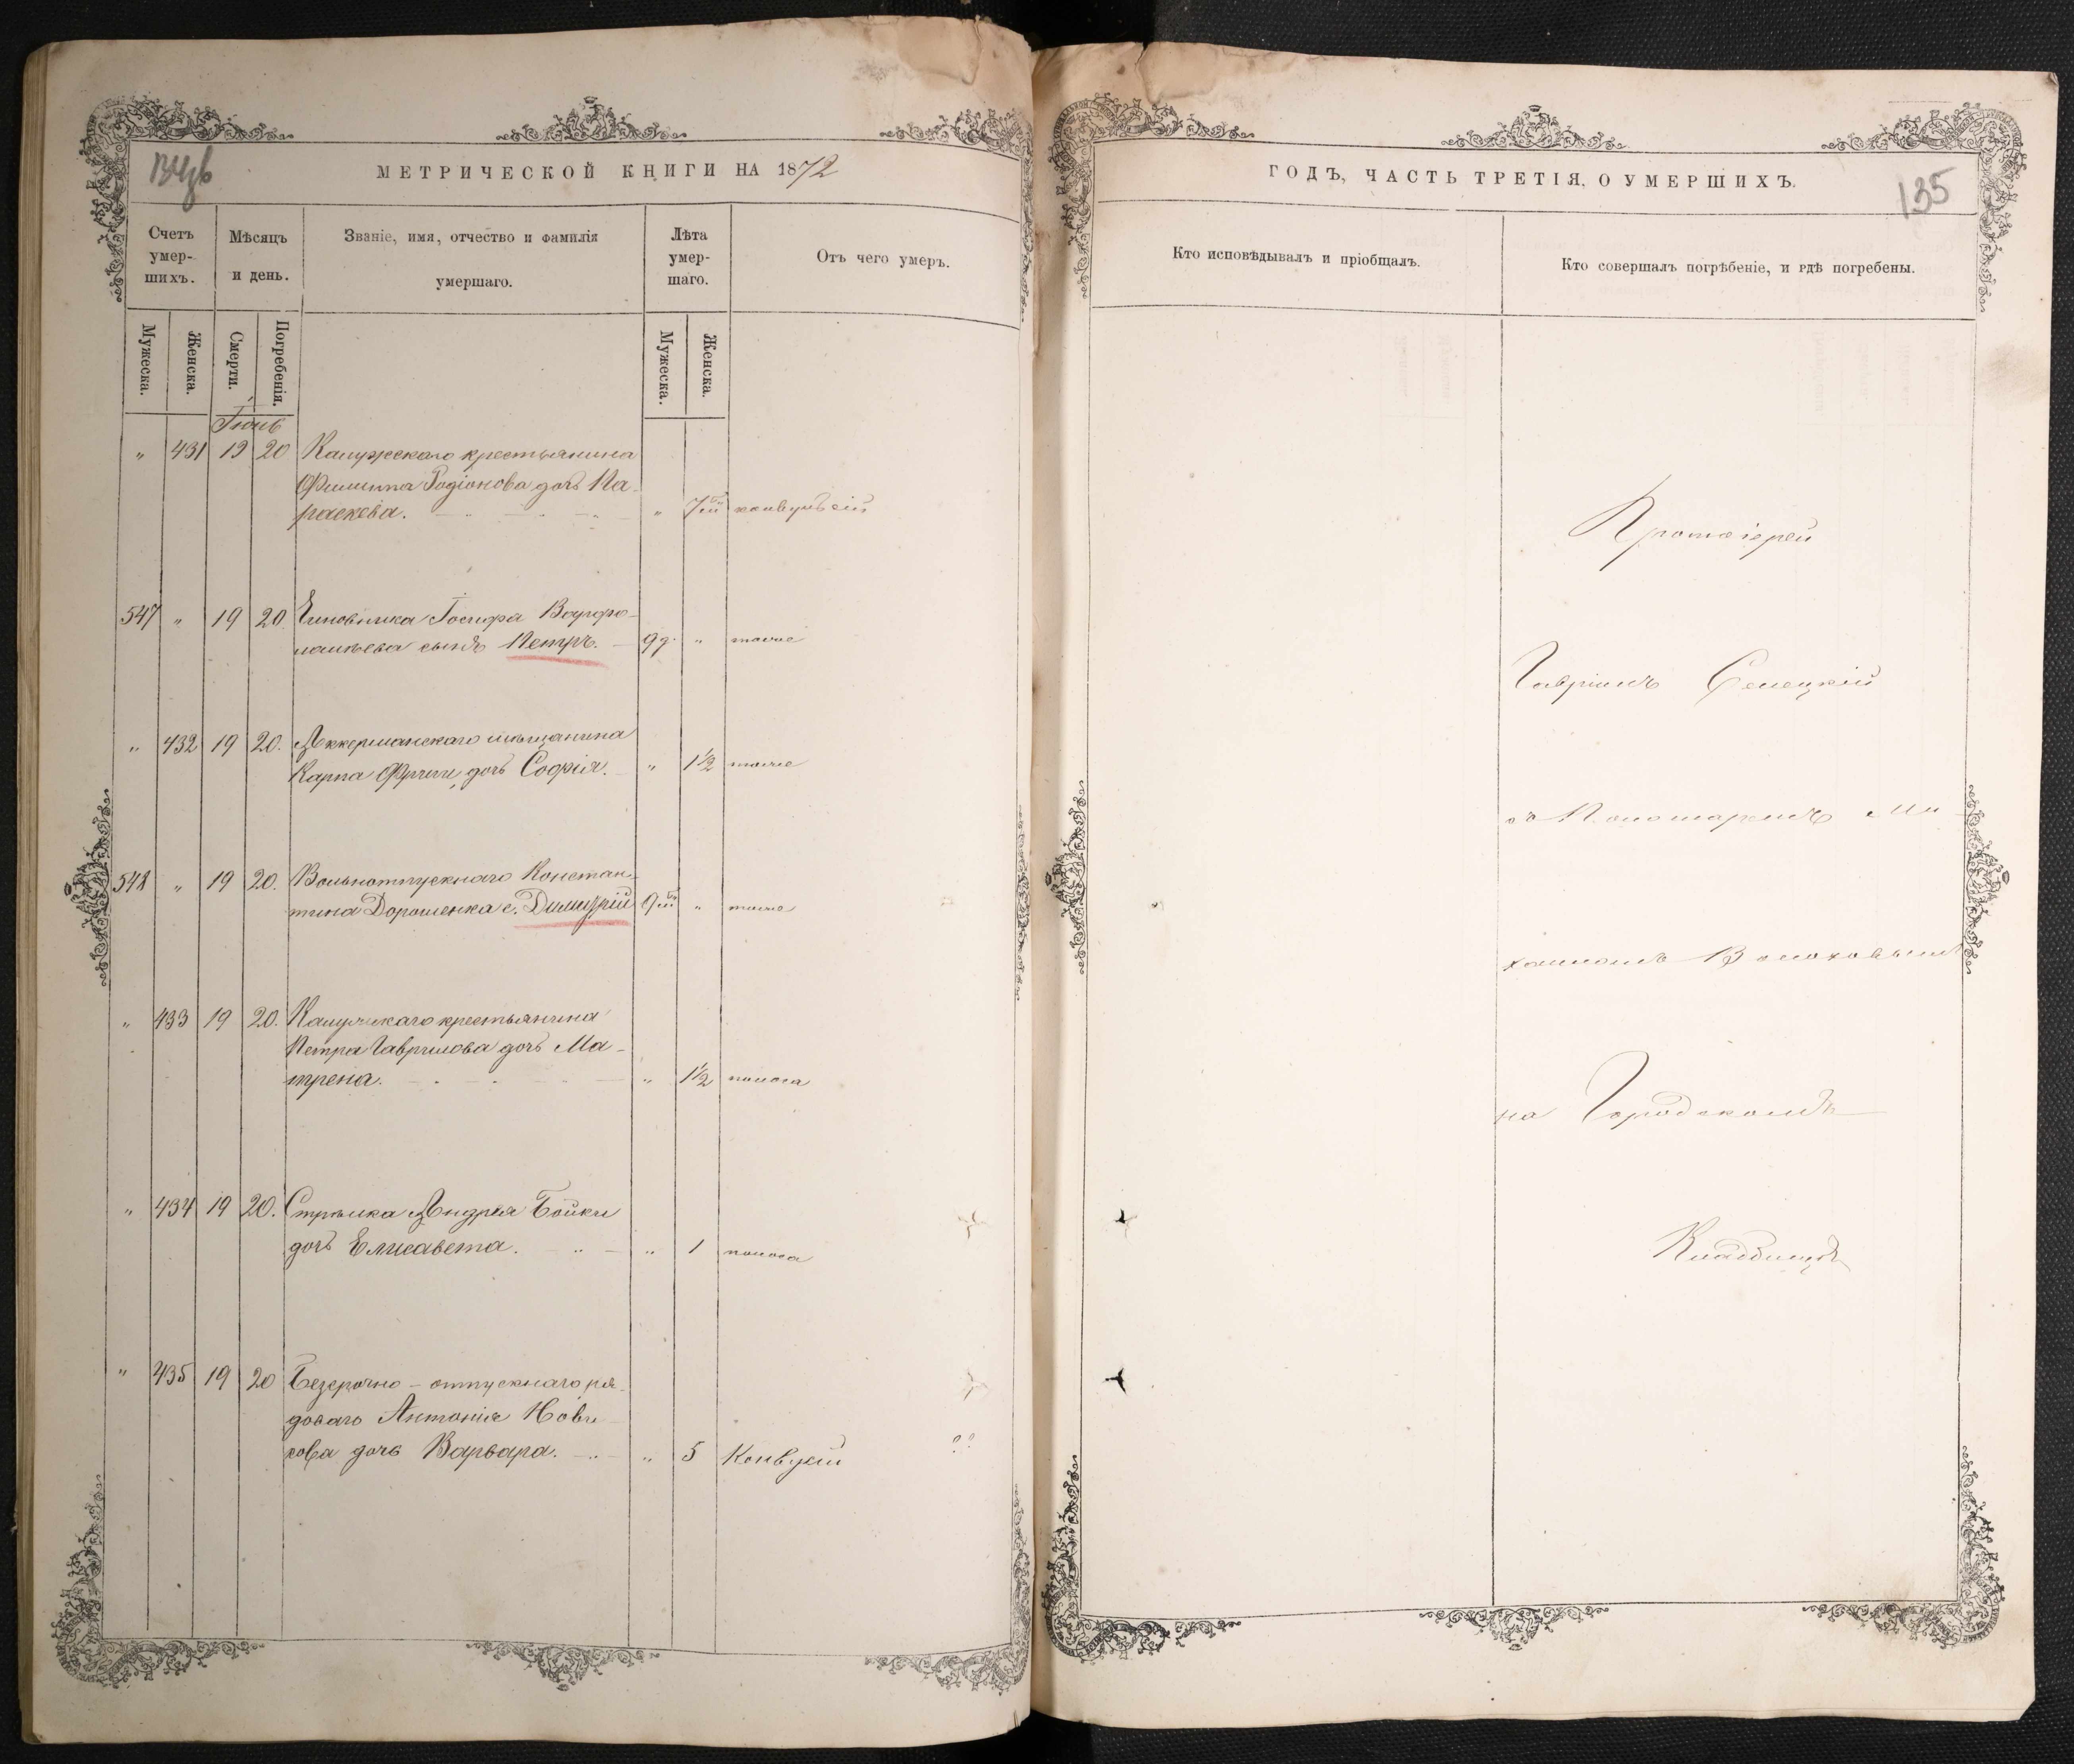 МЕТРИЧЕСКОЙ КНИГИ НА 1872
Счетъ умер-шихъ.
Мѣсяцъ и день.
Званіе, имя, отчество и фамилія умершаго.
Лѣта умер-шаго.
Отъ чего умеръ.
Мужеска.
Женска.
Смерти.
Погребенія.
Мужеска.
Женска.
" 431 19 20 Калужскаго крестьянина
Филиппа Родіонова дочь Па-
раскева. " 7м конвульсій
547 " 19 20 Чиновника Іосифа Варфо-
ломѣева сынъ Петръ. 9д. " тоже
" 432 19 20. Аккерманскаго мѣщанина
Карпа дочь Софія. " 1½ тоже
548 " 19 20. Вольноотпускнаго Констан-
тина Дорошенка с. Димитрій 9м " тоже
" 433 19 20. Калужскаго крестьянина
Петра Гаврилова дочь Ма-
трена. " 1½ поноса
" 434 19 20. Стрѣлка Андрея Бойки
дочь Елисавета. " 1 поноса
" 435 19 20 Безсрочно-отпускнаго ря-
доваго Антонія Нови-
кова дочь Варвара. " 5 Конвусій
ГОДЪ, ЧАСТЬ ТРЕТІЯ, О УМЕРШИХЪ.
135
Кто исповѣдывалъ и пріобщалъ.
Кто совершалъ погрѣбеніе, и гдѣ погребены.
Протоіерей
Гавріилъ Селецкій
съ Пономаремъ Ми
хаиломъ Волоховымъ
на Городскомъ
Кладбищѣ